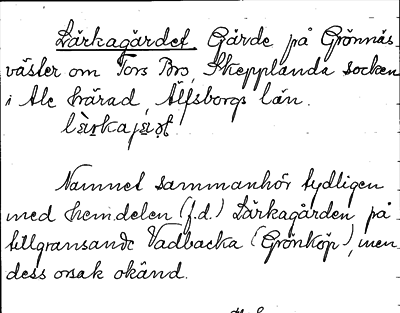 Lärkagärdet. Gärde på Grönnäs
väster om Tors Bro, Skepplanda socken
i Ale härad, Älfsborgs län.
Namnet sammanhör tydligen
med hem.delen (f.d.) Lärkagården på
tillgränsande Vadbacka (Grönköp), men
dess orsak okänd.